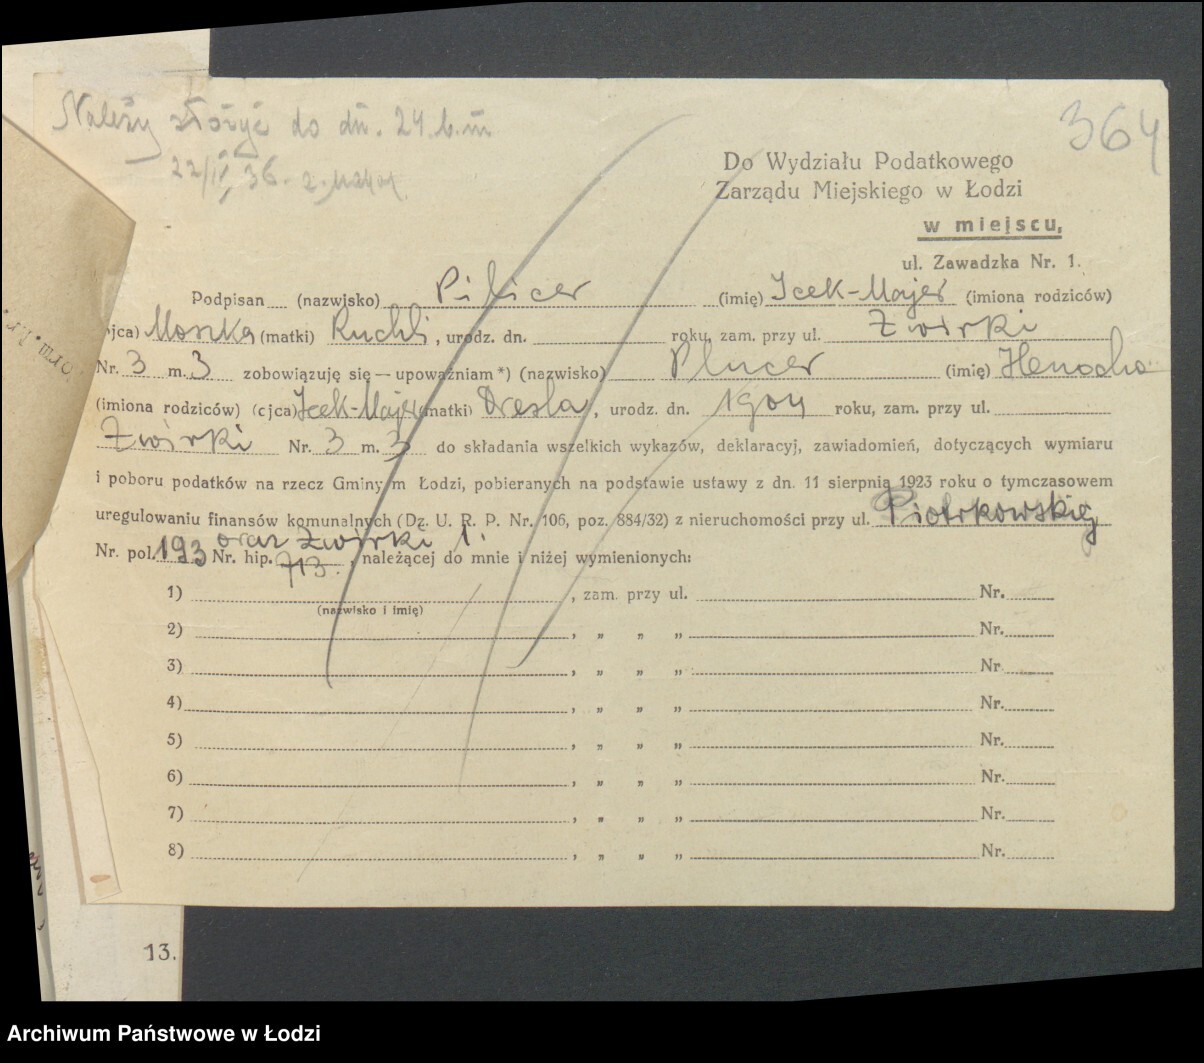 Należy złożyć do dn. 24 b.m
22/II 36.
364
Do Wydziału Podatkowego
Zarządu Miejskiego w Łodzi
w miejscu,
ul. Zawadzka Nr. 1.
Podpisan (nazwisko) Pilicer (imię) Icek-Majer (imiona rodziców)
ojca) Moszka (matki) Ruchli, urodz. dn. roku, zam. przy ul. Żwirki
Nr. 3 m. 3 zobowiązuję się — upoważniam *) (nazwisko) Plucer (imię) Henocha
(imiona rodziców) (cjca) Icek-Majer (matki) Dresla, urodz. dn. 1904 roku, zam. przy ul.
Żwirki Nr. 3 m. 3 do składania wszelkich wykazów, deklaracyj, zawiadomień, dotyczących wymiaru
i poboru podatków na rzecz Gminy m Łodzi, pobieranych na podstawie ustawy z dn. 11 sierpnia 1923 roku o tymczasowem
uregulowaniu finansów komunalnych (Dz. U. R. P. Nr. 106, poz. 884/32) z nieruchomości przy ul. Piotrkowskiej
oraz Żwirki 1.
Nr. pol. 193 Nr. hip. 713, należącej do mnie i niżej wymienionych:
1) , zam. przy ul. Nr.
(nazwisko i imię)
2) , „ „ „ Nr.
3) , „ „ „ Nr
4) , „ „ „ Nr.
5) , „ „ „ Nr.
6) , „ „ „ Nr.
7) , „ „ „ Nr.
8) , „ „ „ Nr.
13.
Archiwum Państwowe w Łodzi